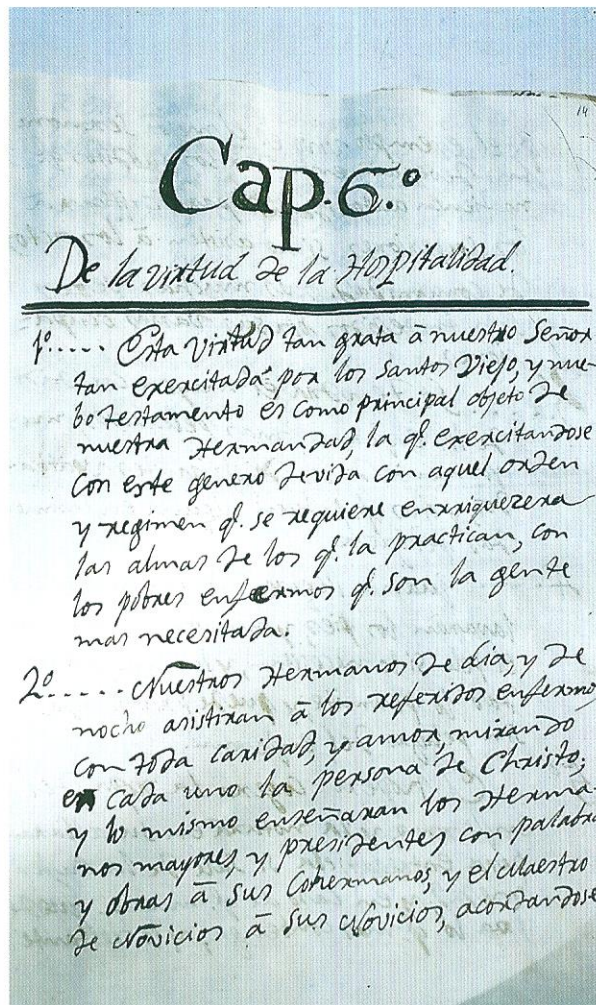 14
Cap. 6.º
De la virtud de la Hospitalidad.
1º..... Esta virtud tan grata â nuestro Señor
tan exercitada por los Santos Viejo, y nue-
bo testamento es como principal objeto de
nuestra Hermandad, la q̃. exercitandose
con este genero de vida con aquel orden
y regimen q̃. se requiere enrriquezera
las almas de los q̃. la practican, con
los pobres enfermos q̃. son la gente
mas necesitada.
2º..... Nuestros Hermanos de dia, y de
noche asistiran â los referidos enfermos
con toda caridad, y amor, mirando
en cada uno la persona de Christo;
y lo mismo enseñaran los Herma-
nos mayores, y presidentes con palabra
y obras â sus Cohermanos, y el Maestro
de Novicios â sus Novicios, acordandose